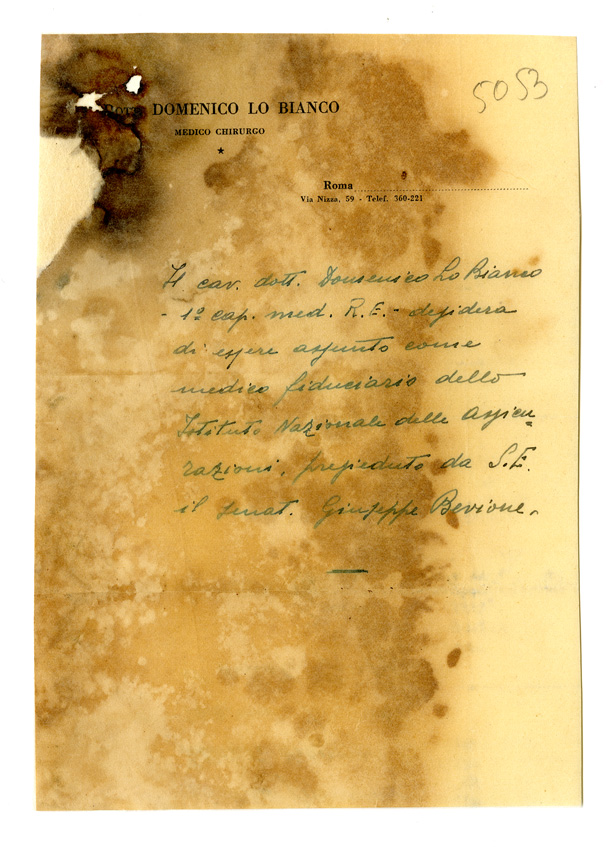 5053
Dott. DOMENICO LO BIANCO
MEDICO CHIRURGO
★
Roma
Via Nizza, 59 - Telef. 360-221
Il cav. dott. Domenico Lo Bianco
- 1º cap. med. R.E. - desidera
di essere assunto come
medico fiduciario dello
Istituto Nazionale delle Assicu-
razioni, presieduto da S.E.
il senat. Giuseppe Bevione.